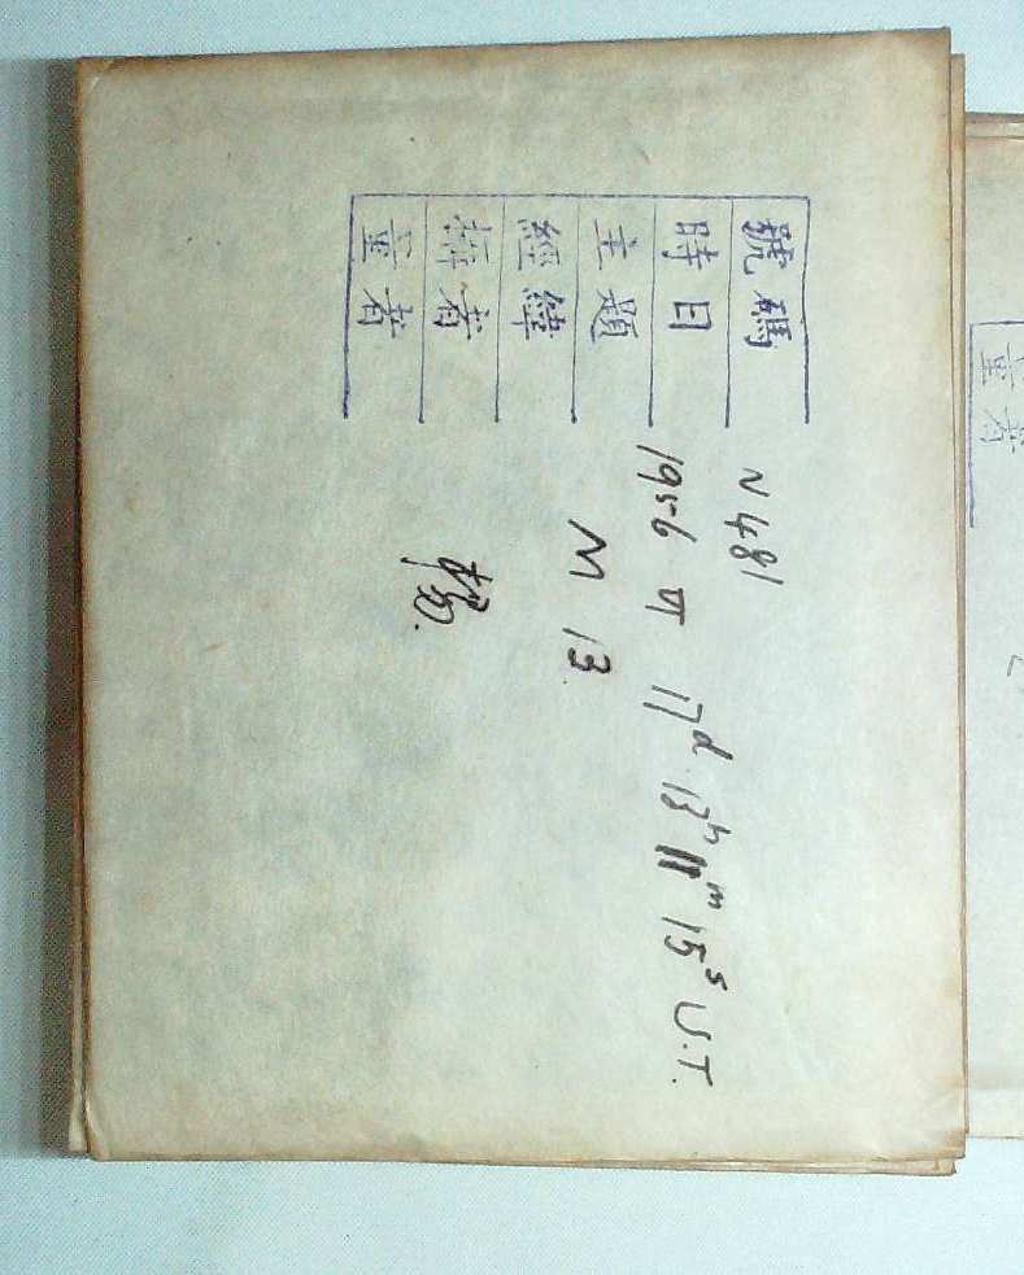 號碼 N 481
時日 1956 VI 17d 13h 11m 15s U.T.
主題 M 13.
經緯
者
量者
量者